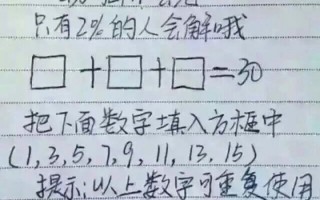 只有2%的人会解哦
□+□+□=30
把下面数字填入方框中
(1,3,5,7,9,11,13,15)
提示:以上数字可重复使用